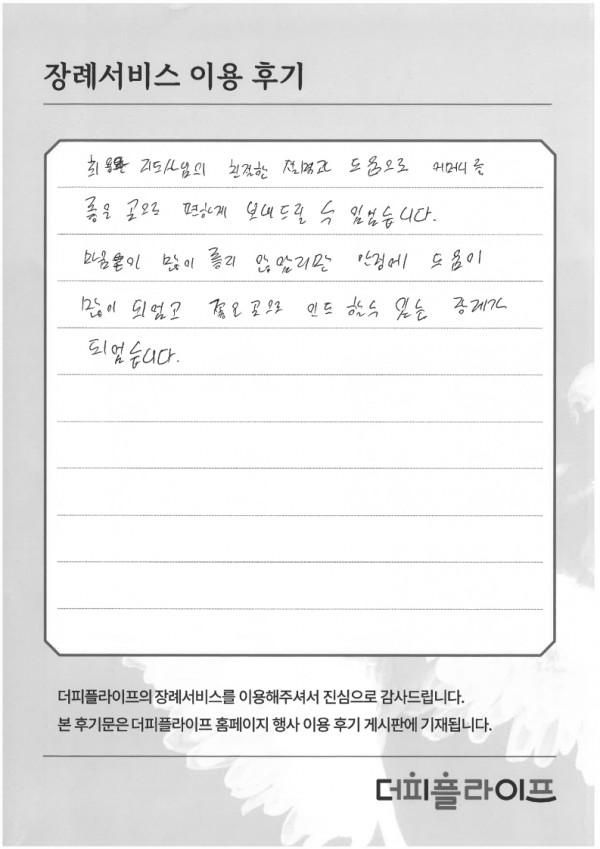 장례서비스 이용 후기
지도사님의 친절한 설명과 도움으로 어머니를
좋은 곳으로 편하게 보내드릴 수 있었습니다.
많이 안정에 도움이
많이 되었고 좋은곳으로 인도 할수 있는 장례가
되었습니다.
더피플라이프의 장례서비스를 이용해주셔서 진심으로 감사드립니다.
본 후기문은 더피플라이프 홈페이지 행사 이용 후기 게시판에 기재됩니다.
더피플라이프